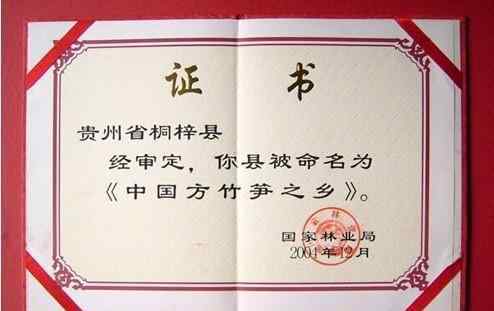 证 书
贵州省桐梓县
经审定，你县被命名为
《中国方竹笋之乡》。
国家林业局
2004年12月